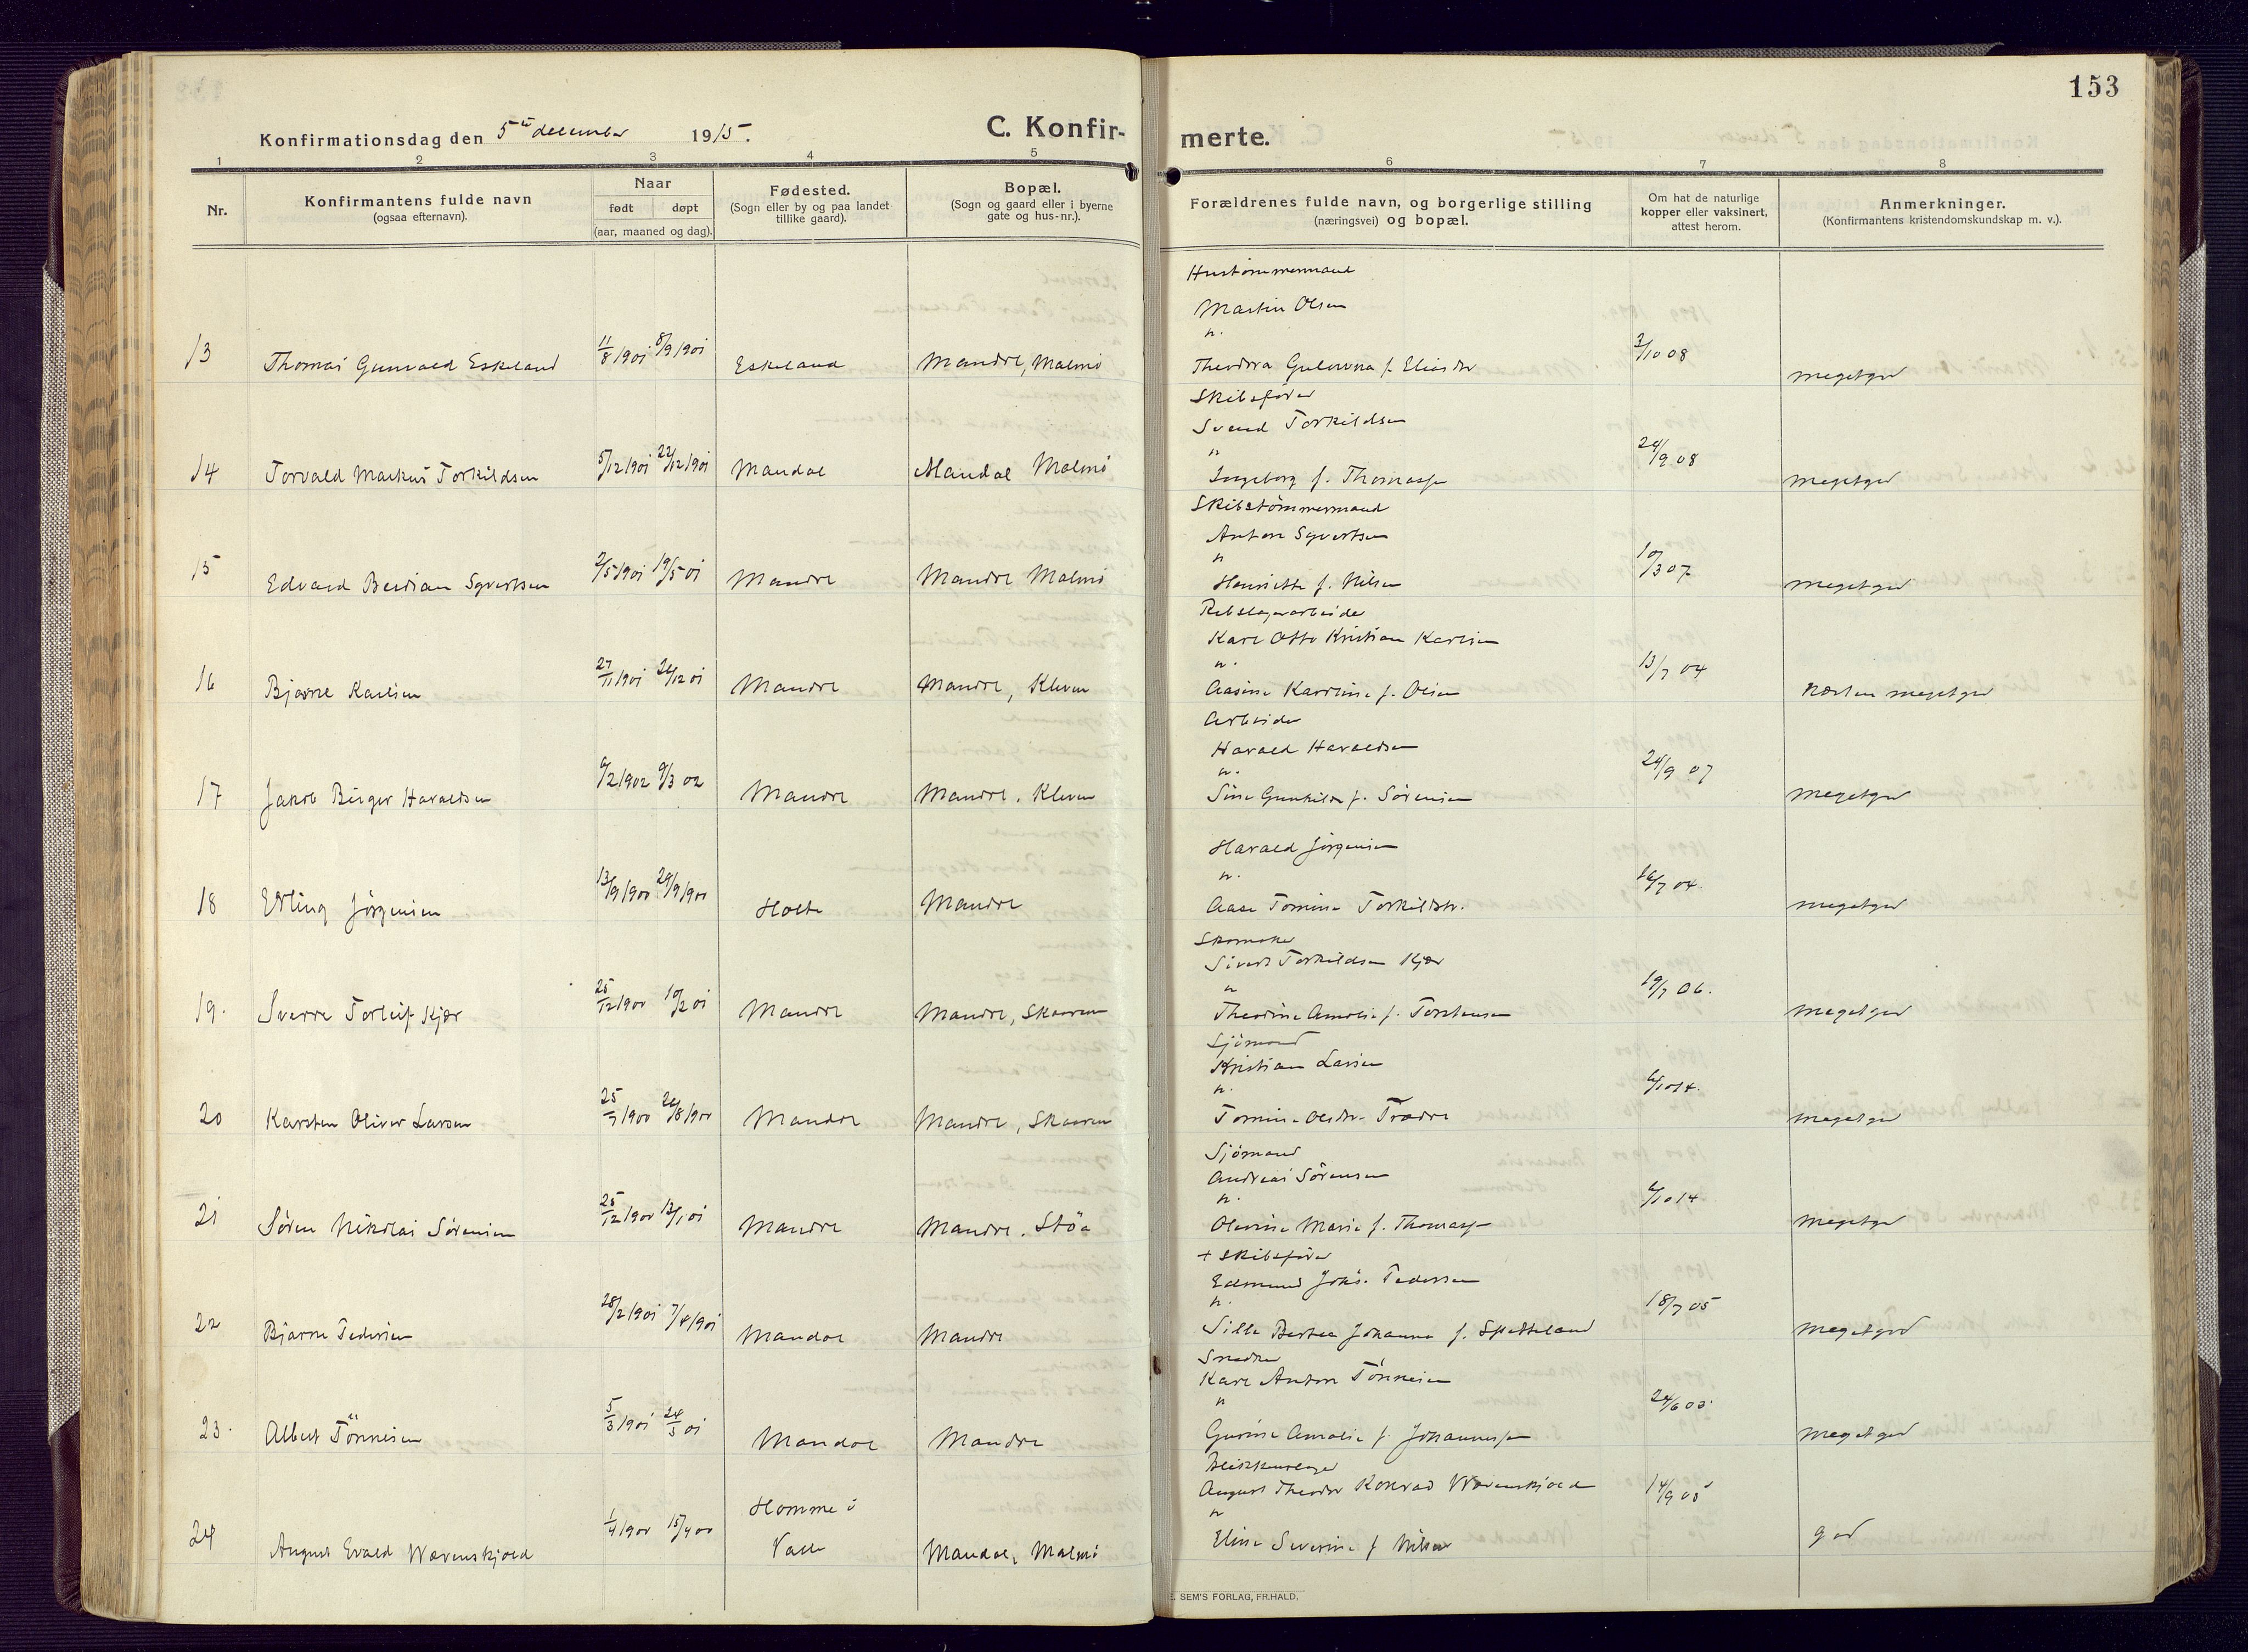 153
Konfirmationsdag den 5te december 1915.
C. Konfir-
merte.
1 2 3 4 5 6 7 8
Nr.
Konfirmantens fulde navn
(ogsaa efternavn).
Naar
født døpt
(aar, maaned og dag).
Fødested.
(Sogn eller by og paa landet
tillike gaard).
Bopæl.
(Sogn og gaard eller i byerne
gate og hus-nr.).
Forældrenes fulde navn, og borgerlige stilling
(næringsvei) og bopæl.
Om hat de naturlige
kopper eller vaksinert,
attest herom.
Anmerkninger.
(Konfirmantens kristendomskundskap m. v.).
Hustømmermand
Martin Olsen
13 Thomas Gunvald Eskeland 11/8 1901 8/9 1901 Eskeland Mandal, Malmø Theodora f. Eliasdtr 3/10 08 megetgod
Skibsfører
Svend Torkildsen
14 Torvald Markus Torkildsen 5/12 1901 22/12 1901 Mandal Mandal Malmø Ingeborg f. Thomassen 24/9 08 megetgod
Skibstømmermand
Anton Syvertsen
15 Edvard Berdian Syvertsen 2/5 1901 19/5 01 Mandal Mandal Malmø Henriette f. Nilsen 10/3 07 megetgod
Rebslagerarbeider
Karl Otto Kristian Karlsen
16 Bjarne Karlsen 27/11 1901 26/12 01 Mandal Mandal, Kleven Aasine Karoline f. Olsen 13/7 04 Næsten megetgod
Arbeider
Harald Haraldsen
17 Jakob Birger Haraldsen 6/2 1902 9/3 02 Mandal Mandal. Kleven Sine Gunhilde f. Sørensen 24/9 07 megetgod
Harald Jørgensen
18 Erling Jørgensen 13/9 1900 29/9 1900 Holte Mandal Aase Tomine Torkildsdtr. 16/7 04. megetgod
Skomaker
Sivert Torkildsen Kjær
19. Sverre Torleif Kjær 25/12 1900 10/2 01 Mandal Mandal, Skaaren Theodine Amalie f. Torstensen 19/7 06. megetgod
Sjömand
Kristian Larsen
20 Karsten Oliver Larsen 25/7 1900 26/8 1900 Mandal Mandal, Skaaren Tomine Olsdtr. 6/10 14. megetgod
Sjömand
Andreas Sörensen
21 Sören Nikolai Sörensen 25/12 1900 13/1 01 Mandal Mandal. Stöa Olevine Marie f. Thomassen 6/10 14 megetgod
+ Skibsfører
Edmund Johs. Pedersen
22 Bjarne Pedersen 28/2 1901 7/4 1901 Mandal Mandal Sille Bertea Johanne f. Spetteland 18/7 05 megetgod
Snedker
Karl Anton Tönnesen
23. Albert Tönnesen 5/3 1901 24/3 01 Mandal Mandal Gurine Amalie f. Johannessen megetgod
Blikkenslager
August Theodor Konrad Wævenskjold
Homme i
24 August Evald Wævenskjold 1/4 1900 15/4 00 Valle Mandal, Malmø Eline Severine f Nilsen god
E. SEM'S FORLAG, FR.HALD.